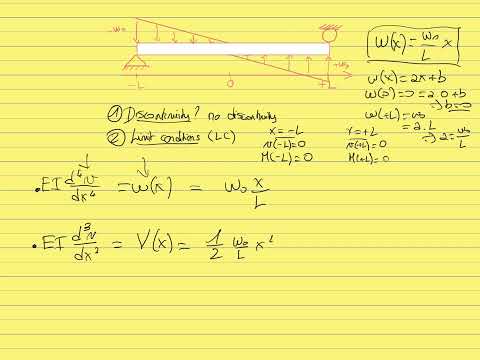 -w₀
-L
0
+L
+w₀
x
w(x) = w₀/L x
w(x) = ax+b
w(0)=0 = a.0+b
⇒ b=0
w(+L) = w₀
= a.L
⇒ a = w₀/L
① Discontinuity? no discontinuity
② Limit conditions (LC)
x = -L
v(-L)=0
M(-L)=0
x = +L
v(+L)=0
M(+L)=0
• EI d⁴v/dx⁴ = w(x) = w₀ x/L
• EI d³v/dx² = V(x) = 1/2 w₀/L x²